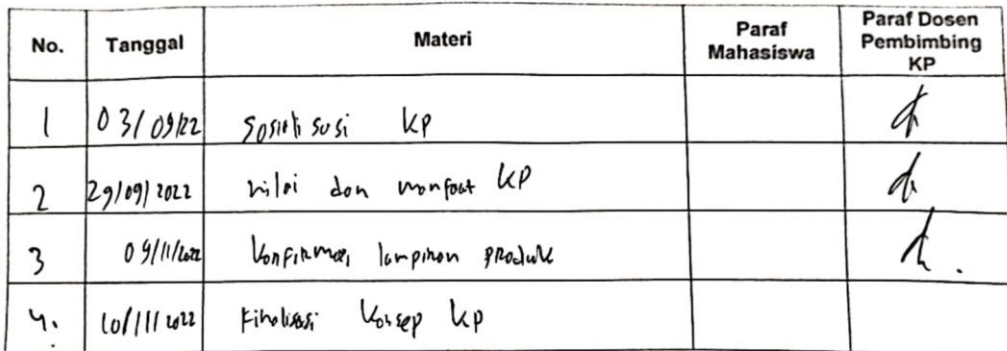 No. Tanggal Materi Paraf Mahasiswa Paraf Dosen Pembimbing KP
1 03/09/22 Sosialisasi KP
2 29/09/2022 nilai dan manfaat KP
3 09/11/2022 Konfirmasi lampiran produk
4. 10/11/2022 Finalisasi Konsep KP